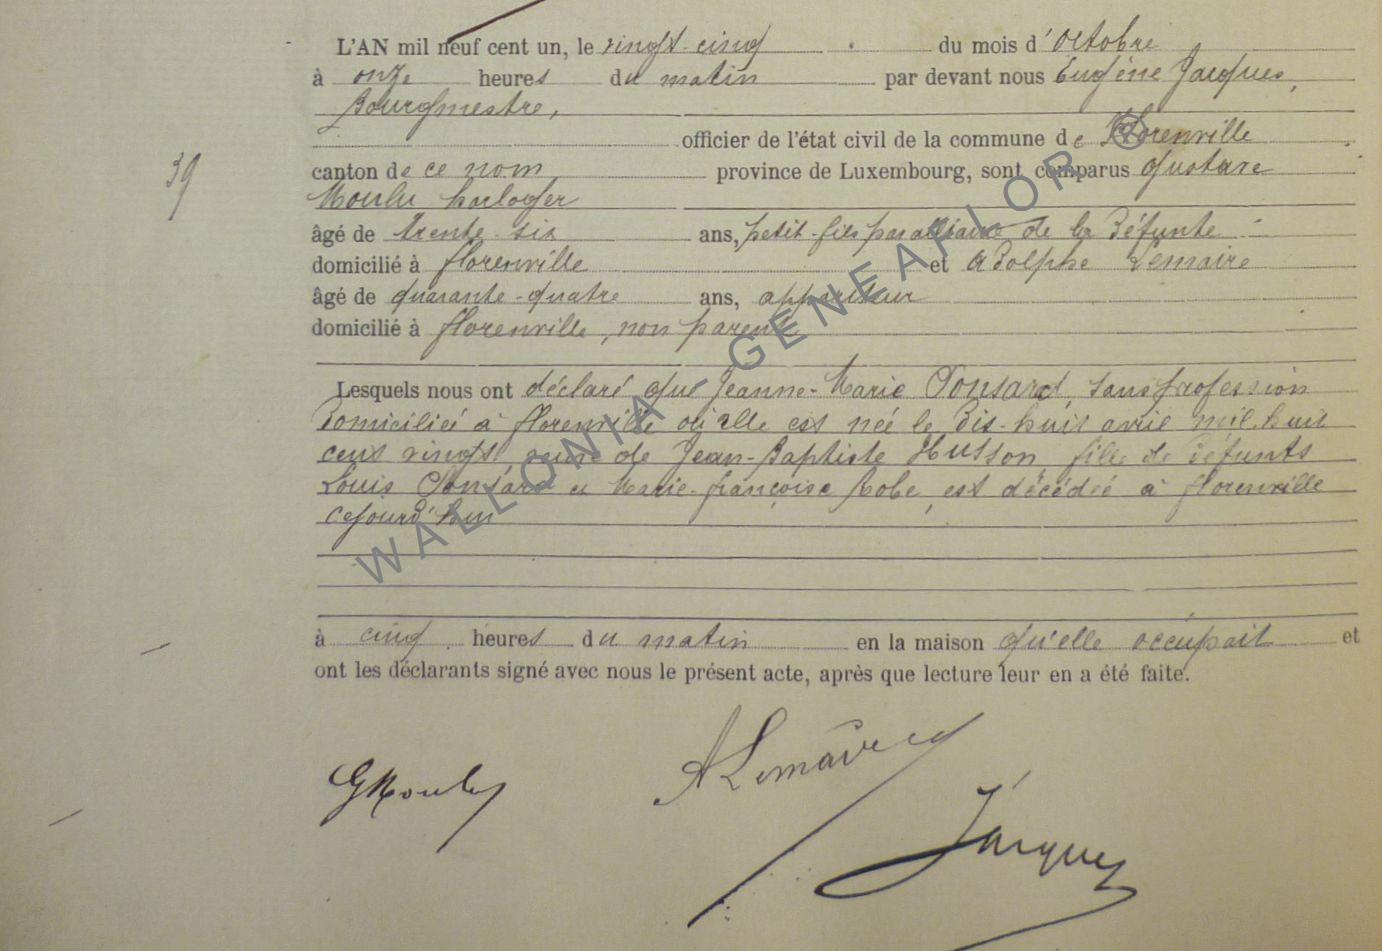 L'AN mil neuf cent un, le vingt-cinq du mois d'Octobre
à onze heures du matin par devant nous Eugène Jacques,
Bourgmestre,
officier de l'état civil de la commune de Florenville
39
canton de ce nom province de Luxembourg, sont comparus Gustave
Moulu horloger
âgé de trente-six ans, petit-fils par alliance de la défunte
domicilié à Florenville et Adolphe Lemaire
âgé de quarante-quatre ans, appariteur
domicilié à Florenville, non parent
Lesquels nous ont déclaré que Jeanne-Marie Ponsard, sans profession
domiciliée à Florenville où elle est née le dix-huit avril mil huit
cent vingt, veuve de Jean-Baptiste Husson, fille de défunts
Louis Ponsard et Marie-Françoise Robe, est décédée à Florenville
cejourd'hui
à cinq heures du matin en la maison qu'elle occupait et
ont les déclarants signé avec nous le présent acte, après que lecture leur en a été faite.
GMoulu
ALemaire
Jacques
WALLONIA-GENEAFLOR ®